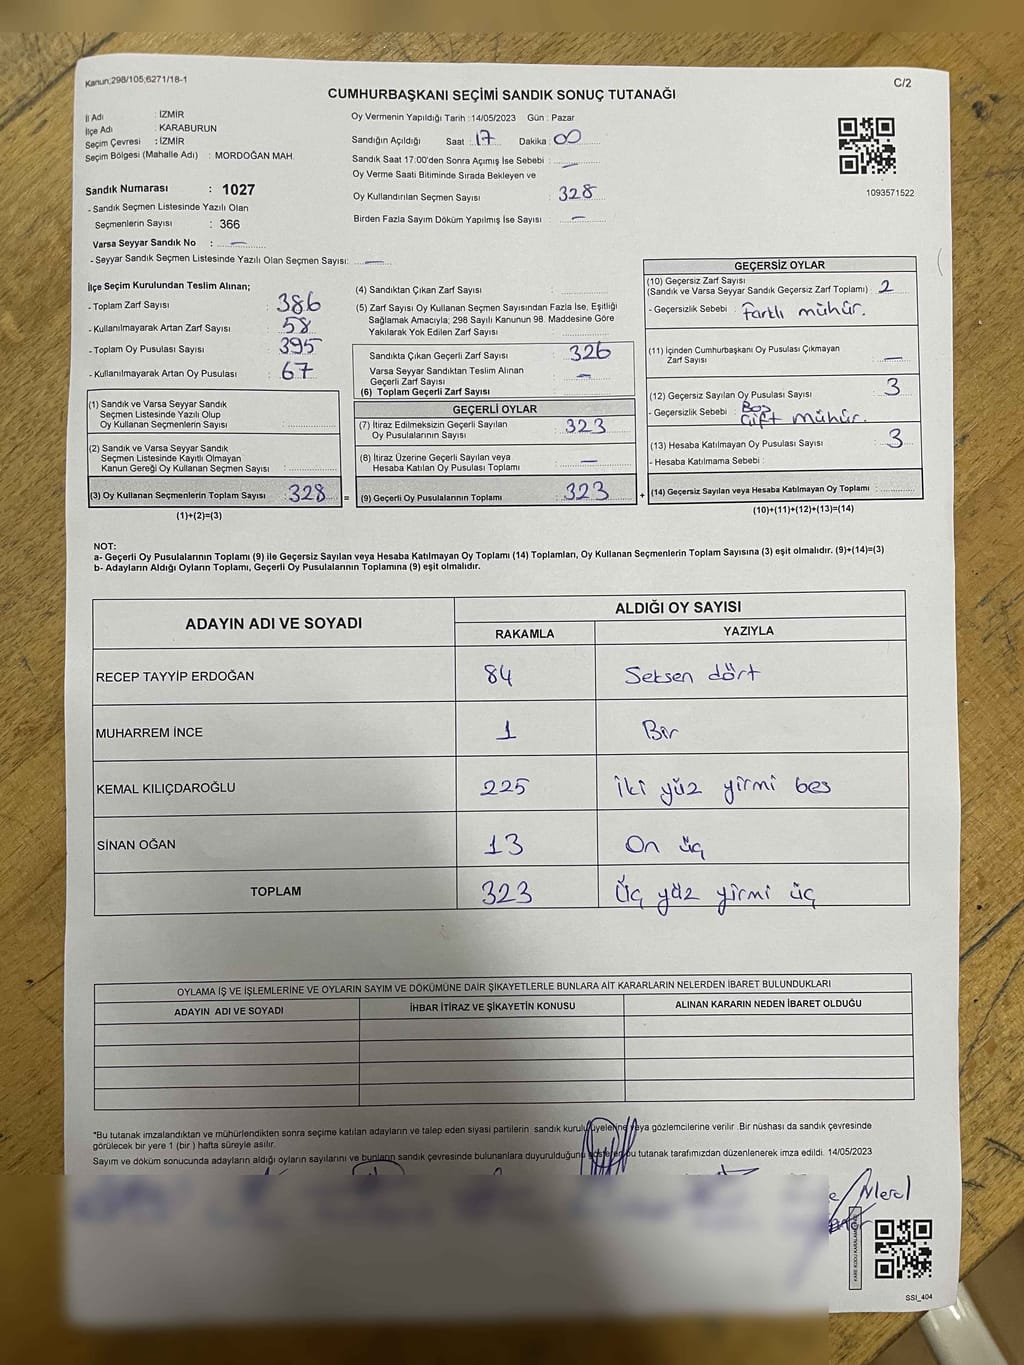 Kanun:298/105;6271/18-1
C/2
CUMHURBAŞKANI SEÇİMİ SANDIK SONUÇ TUTANAĞI
İl Adı : İZMİR
İlçe Adı : KARABURUN
Seçim Çevresi : İZMİR
Seçim Bölgesi (Mahalle Adı) : MORDOĞAN MAH.
Oy Vermenin Yapıldığı Tarih : 14/05/2023 Gün : Pazar
Sandığın Açıldığı Saat : 17 Dakika : 00
Sandık Saat 17:00'den Sonra Açımış İse Sebebi : —
Oy Verme Saati Bitiminde Sırada Bekleyen ve
Oy Kullandırılan Seçmen Sayısı : 328
Birden Fazla Sayım Döküm Yapılmış İse Sayısı : —
1093571522
Sandık Numarası : 1027
- Sandık Seçmen Listesinde Yazılı Olan
Seçmenlerin Sayısı : 366
Varsa Seyyar Sandık No : —
- Seyyar Sandık Seçmen Listesinde Yazılı Olan Seçmen Sayısı: —
İlçe Seçim Kurulundan Teslim Alınan;
- Toplam Zarf Sayısı : 386
- Kullanılmayarak Artan Zarf Sayısı : 58
- Toplam Oy Pusulası Sayısı : 395
- Kullanılmayarak Artan Oy Pusulası : 67
(1) Sandık ve Varsa Seyyar Sandık
Seçmen Listesinde Yazılı Olup
Oy Kullanan Seçmenlerin Sayısı :
(2) Sandık ve Varsa Seyyar Sandık
Seçmen Listesinde Kayıtlı Olmayan
Kanun Gereği Oy Kullanan Seçmen Sayısı :
(3) Oy Kullanan Seçmenlerin Toplam Sayısı : 328 =
(1)+(2)=(3)
(4) Sandıktan Çıkan Zarf Sayısı :
(5) Zarf Sayısı Oy Kullanan Seçmen Sayısından Fazla İse, Eşitliği
Sağlamak Amacıyla; 298 Sayılı Kanunun 98. Maddesine Göre
Yakılarak Yok Edilen Zarf Sayısı :
Sandıkta Çıkan Geçerli Zarf Sayısı : 326
Varsa Seyyar Sandıktan Teslim Alınan
Geçerli Zarf Sayısı : —
(6) Toplam Geçerli Zarf Sayısı :
GEÇERLİ OYLAR
(7) İtiraz Edilmeksizin Geçerli Sayılan
Oy Pusulalarının Sayısı : 323
(8) İtiraz Üzerine Geçerli Sayılan veya
Hesaba Katılan Oy Pusulası Toplamı : —
(9) Geçerli Oy Pusulalarının Toplamı : 323 +
GEÇERSİZ OYLAR
(10) Geçersiz Zarf Sayısı
(Sandık ve Varsa Seyyar Sandık Geçersiz Zarf Toplamı) : 2
- Geçersizlik Sebebi : farklı mühür.
(11) İçinden Cumhurbaşkanı Oy Pusulası Çıkmayan
Zarf Sayısı : —
(12) Geçersiz Sayılan Oy Pusulası Sayısı : 3
- Geçersizlik Sebebi : Boş
çift mühür.
(13) Hesaba Katılmayan Oy Pusulası Sayısı : 3
- Hesaba Katılmama Sebebi :
(14) Geçersiz Sayılan veya Hesaba Katılmayan Oy Toplamı :
(10)+(11)+(12)+(13)=(14)
NOT:
a- Geçerli Oy Pusulalarının Toplamı (9) ile Geçersiz Sayılan veya Hesaba Katılmayan Oy Toplamı (14) Toplamları, Oy Kullanan Seçmenlerin Toplam Sayısına (3) eşit olmalıdır. (9)+(14)=(3)
b- Adayların Aldığı Oyların Toplamı, Geçerli Oy Pusulalarının Toplamına (9) eşit olmalıdır.
ADAYIN ADI VE SOYADI
ALDIĞI OY SAYISI
RAKAMLA YAZIYLA
RECEP TAYYİP ERDOĞAN 84 Seksen dört
MUHARREM İNCE 1 Bir
KEMAL KILIÇDAROĞLU 225 iki yüz yirmi beş
SİNAN OĞAN 13 On üç
TOPLAM 323 Üç yüz yirmi üç
OYLAMA İŞ VE İŞLEMLERİNE VE OYLARIN SAYIM VE DÖKÜMÜNE DAİR ŞİKAYETLERLE BUNLARA AİT KARARLARIN NELERDEN İBARET BULUNDUKLARI
ADAYIN ADI VE SOYADI İHBAR İTİRAZ VE ŞİKAYETİN KONUSU ALINAN KARARIN NEDEN İBARET OLDUĞU
*Bu tutanak imzalandıktan ve mühürlendikten sonra seçime katılan adayların ve talep eden siyasi partilerin sandık kurulu üyelerine veya gözlemcilerine verilir. Bir nüshası da sandık çevresinde
görülecek bir yere 1 (bir) hafta süreyle asılır.
Sayım ve döküm sonucunda adayların aldığı oyların sayılarını ve bunların sandık çevresinde bulunanlara duyurulduğunu gösteren bu tutanak tarafımızdan düzenlenerek imza edildi. 14/05/2023
Meral
SSI_404